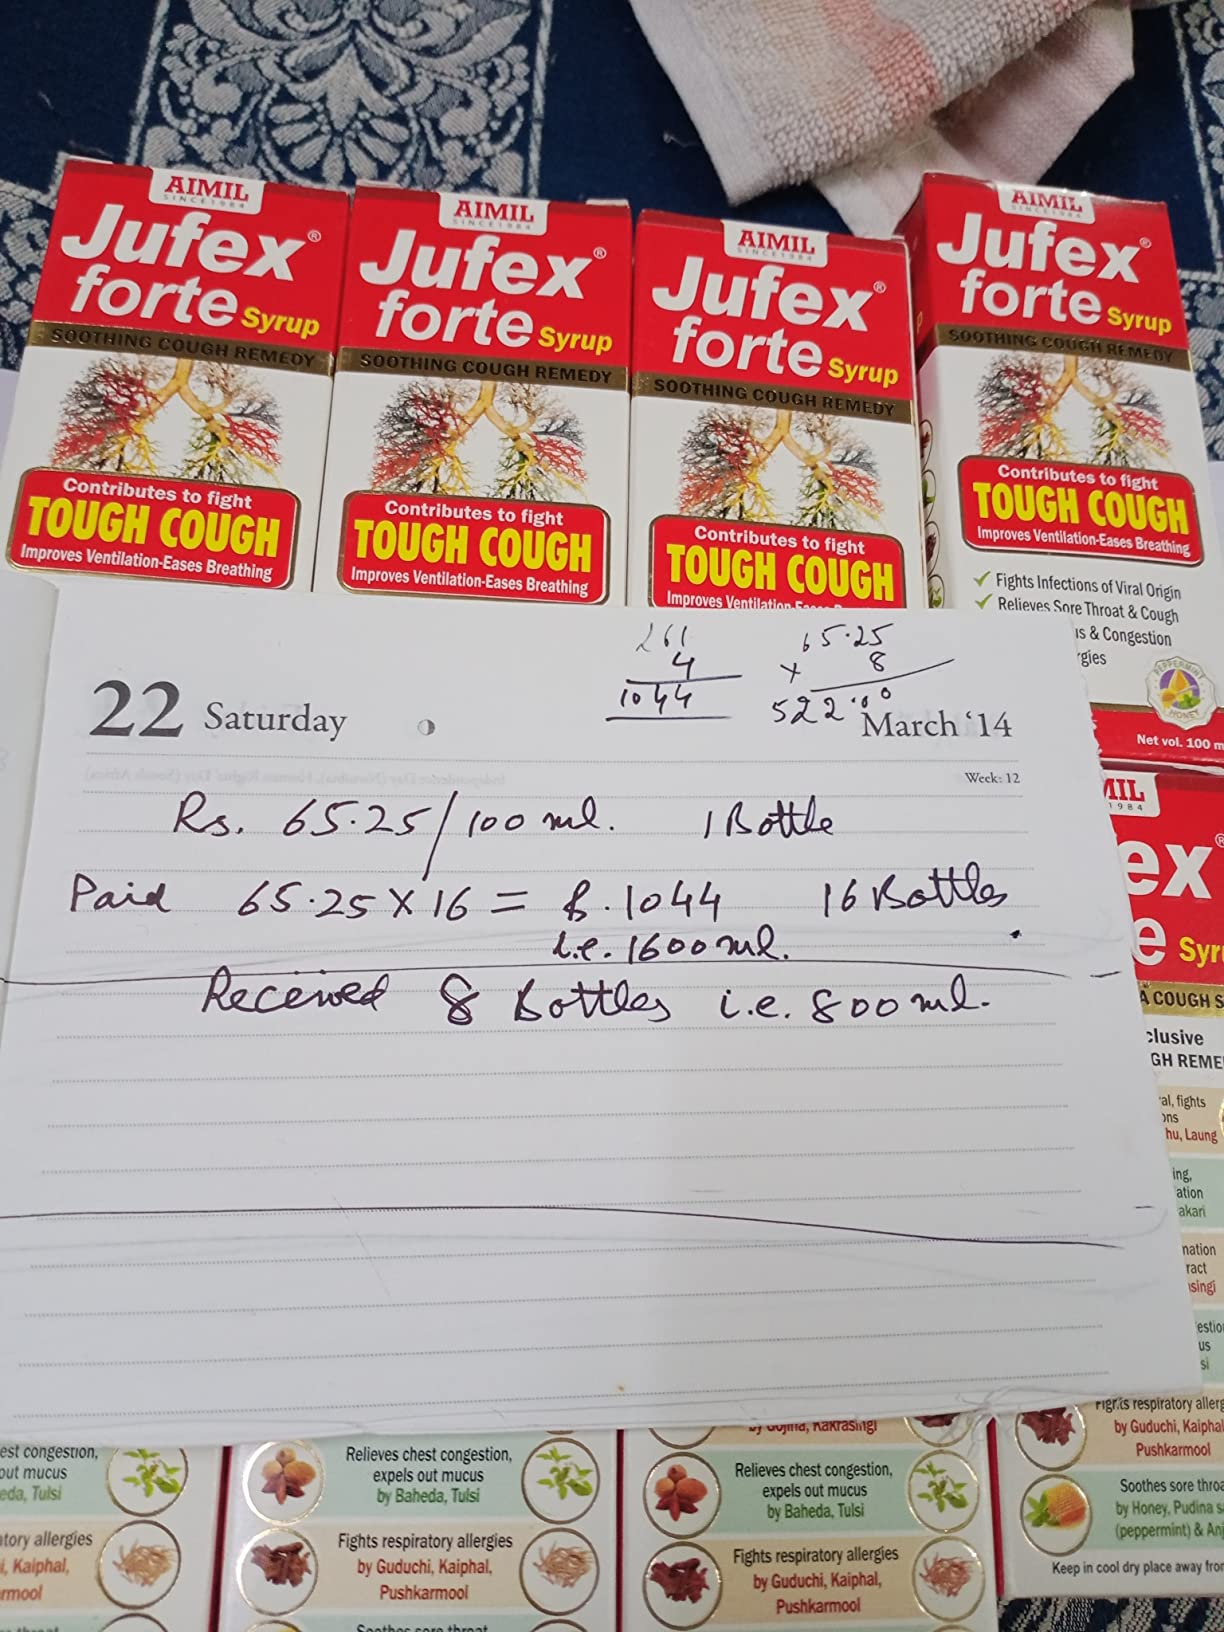 AIMIL
SINCE 1984
Jufex®
forte Syrup
SOOTHING COUGH REMEDY
Contributes to fight
TOUGH COUGH
Improves Ventilation-Eases Breathing
AIMIL
SINCE 1984
Jufex®
forte Syrup
SOOTHING COUGH REMEDY
Contributes to fight
TOUGH COUGH
Improves Ventilation-Eases Breathing
AIMIL
SINCE 1984
Jufex®
forte Syrup
SOOTHING COUGH REMEDY
Contributes to fight
TOUGH COUGH
Improves Ventilation-Eases
AIMIL
SINCE 1984
Jufex®
forte Syrup
SOOTHING COUGH REMEDY
Contributes to fight
TOUGH COUGH
Improves Ventilation-Eases Breathing
✓ Fights Infections of Viral Origin
✓ Relieves Sore Throat & Cough
us & Congestion
rgies
PEPPERMINT
HONEY
Net vol. 100 m
261
4
1044
65.25
× 8
522.00
22 Saturday
March '14
Week: 12
Rs. 65.25/100 ml. 1 Bottle
Paid 65.25 × 16 = Rs. 1044 16 Bottles
i.e. 1600 ml.
Received 8 Bottles i.e. 800 ml.
MIL
1984
ex®
e Syr
A COUGH S
clusive
GH REME
al, fights
ons
hu, Laung
ing,
ation
akari
nation
ract
singi
estio
us
si
est congestion,
out mucus
eda, Tulsi
atory allergies
i, Kaiphal,
rmool
Relieves chest congestion,
expels out mucus
by Baheda, Tulsi
Fights respiratory allergies
by Guduchi, Kaiphal,
Pushkarmool
Soothes sore throat
by Gojiha, Kakrasingi
Relieves chest congestion,
expels out mucus
by Baheda, Tulsi
Fights respiratory allergies
by Guduchi, Kaiphal,
Pushkarmool
Fights respiratory allerg
by Guduchi, Kaipha
Pushkarmool
Soothes sore throa
by Honey, Pudina s
(peppermint) & Anj
Keep in cool dry place away fro